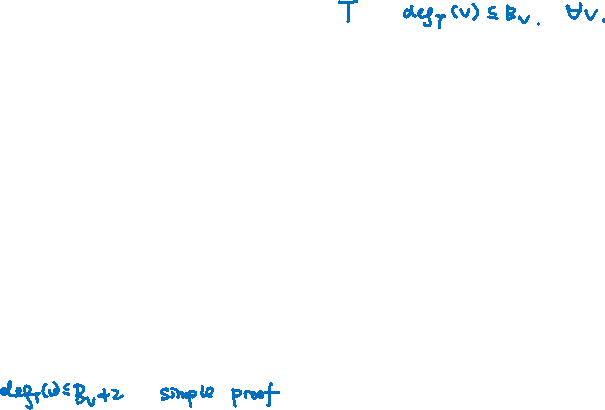 T deg_T(v) ≤ B_v. ∀v.
deg_T(v) ≤ B_v+2 simple proof